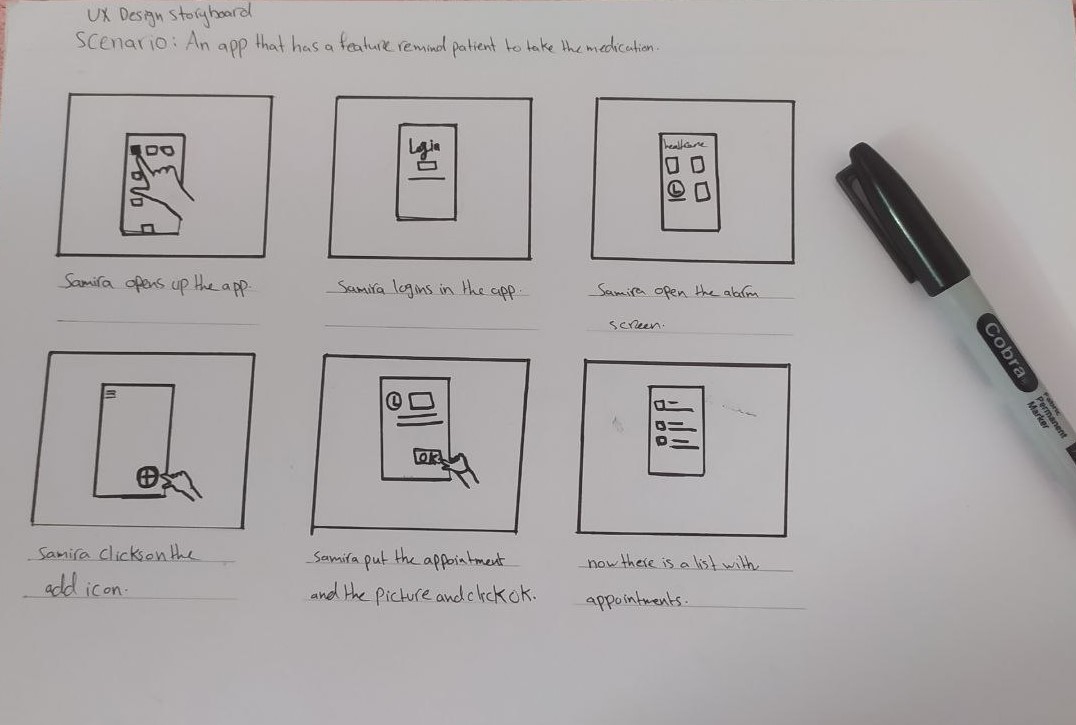 UX Design Storyboard
Scenario: An app that has a feature remind patient to take the medication.
Login
healthcare
Samira opens up the app.
Samira logins in the app.
Samira open the alarm
screen.
OK
Samira clicks on the
add icon.
Samira put the appointment
and the picture and click OK.
now there is a list with
appointments.
Cobra
Fabric
Permanent
Marker